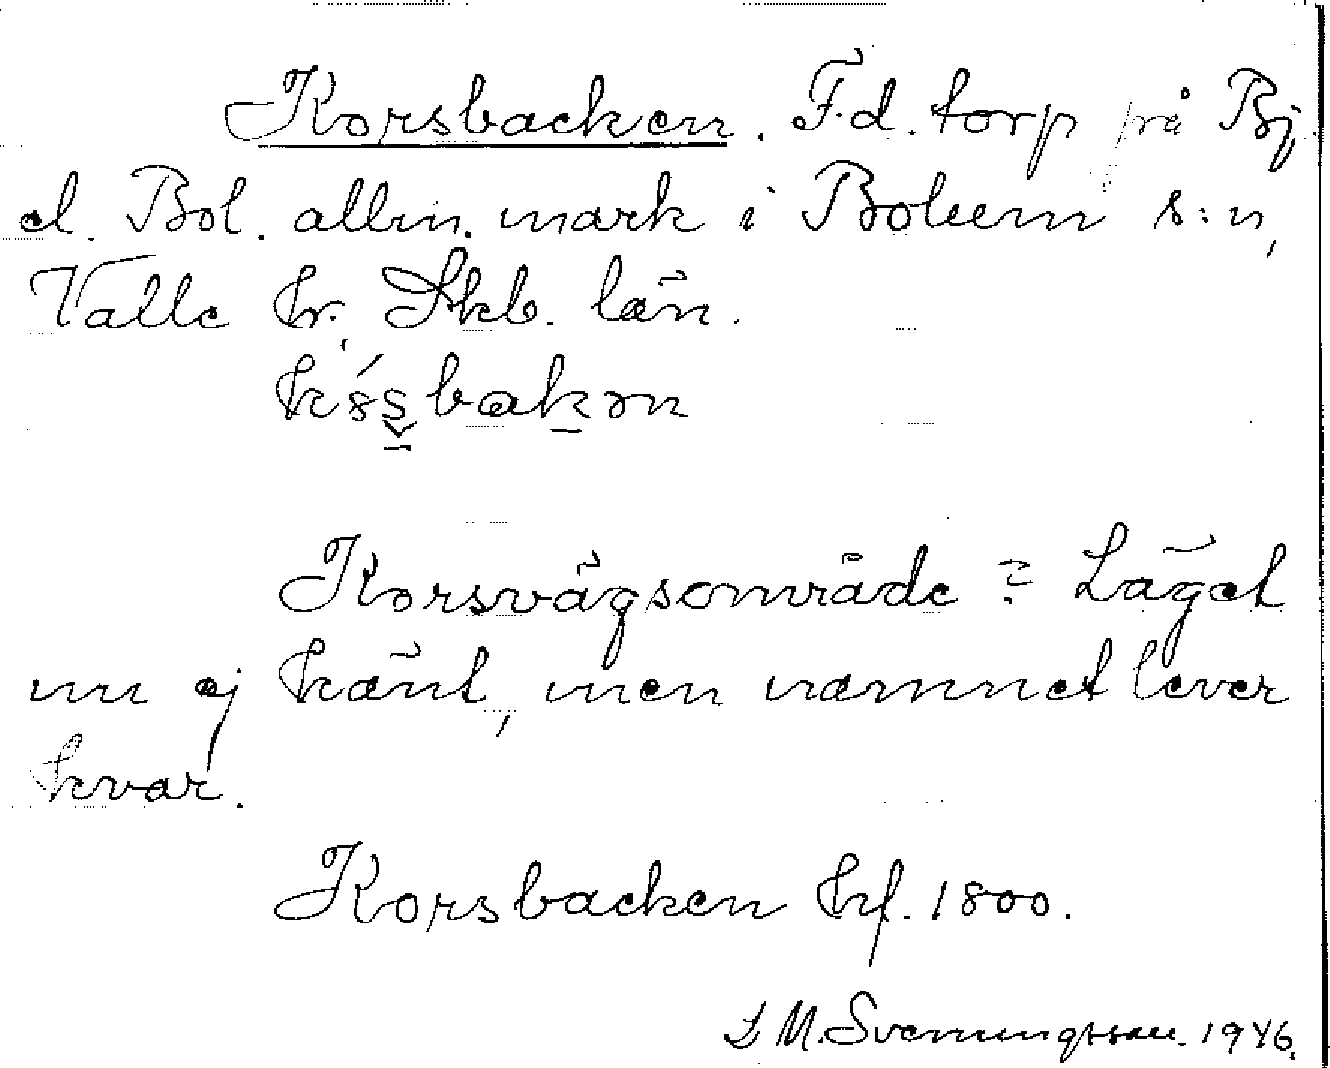 Korsbacken. F.d. torp på Bj.
d. Bol. allm. mark i Bolum s:n,
Valle hr, Skb. län.
Korsvägsområde? Läget
nu ej känt, men namnet lever
kvar.
Korsbacken kf. 1800.
S M. Svenungsson. 1946.